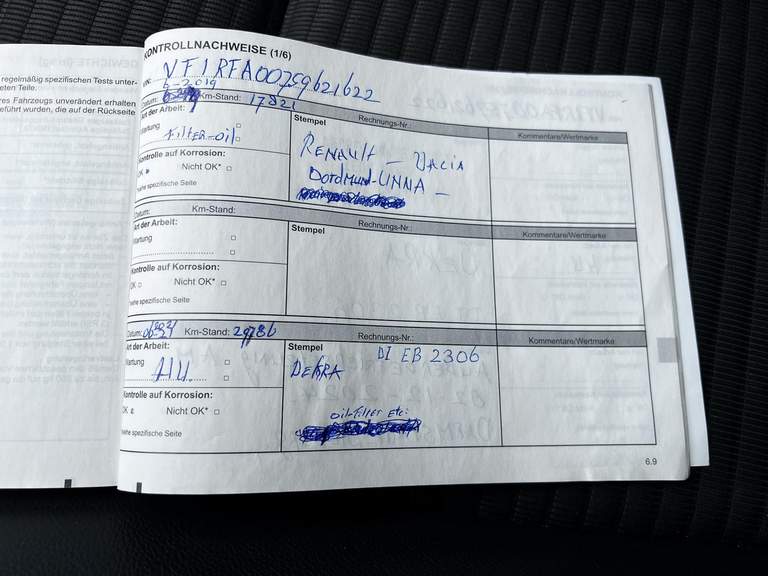 GEWICHTE (in kg)
regelmäßig spezifischen Tests unter-
eten Teile.
res Fahrzeugs unverändert erhalten
eführt wurden, die auf der Rückseite
KONTROLLNACHWEISE (1/6)
VIN: VF1RFA00759621622
6-2019
Datum: Km-Stand: 17821
Art der Arbeit:
Wartung
Filter-oil
Kontrolle auf Korrosion:
OK Nicht OK*
*siehe spezifische Seite
Stempel Rechnungs-Nr.:
RENAULT - DACIA
Dordmund-UNNA -
Kommentare/Wertmarke
Datum: Km-Stand:
Art der Arbeit:
Wartung
Kontrolle auf Korrosion:
OK Nicht OK*
*siehe spezifische Seite
Stempel Rechnungs-Nr.:
Kommentare/Wertmarke
Datum: Km-Stand: 29786
Art der Arbeit:
Wartung
Kontrolle auf Korrosion:
OK Nicht OK*
*siehe spezifische Seite
Stempel Rechnungs-Nr.:
DI EB 2306
DEKRA
oil-filter etc:
Kommentare/Wertmarke
6.9